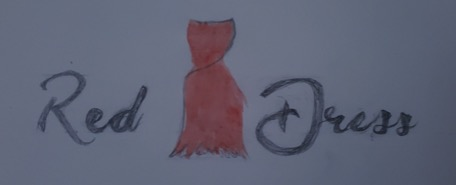 Red Dress